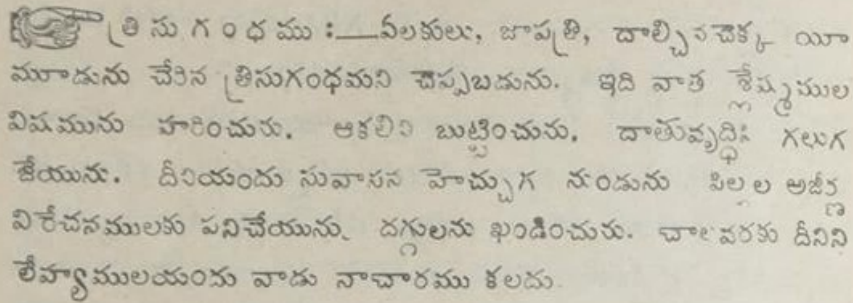 త్రి సు గ ం ధ ము :—ఏలకులు, జాపత్రి, దాల్చినచెక్క యీ
మూడును చేరిన త్రిసుగంధమని చెప్పబడును. ఇది వాత శ్లేష్మముల
విషమును హరించును. ఆకలిని బుట్టించును. దాతువృద్ధిని గలుగ
జేయును. దీనియందు సువాసన హెచ్చుగ నుండును పిల్లల అజీర్ణ
విరేచనములకు పనిచేయును. దగ్గులను ఖండించును. చాలవరకు దీనిని
లేహ్యాములయందు వాడు నాచారము కలదు.